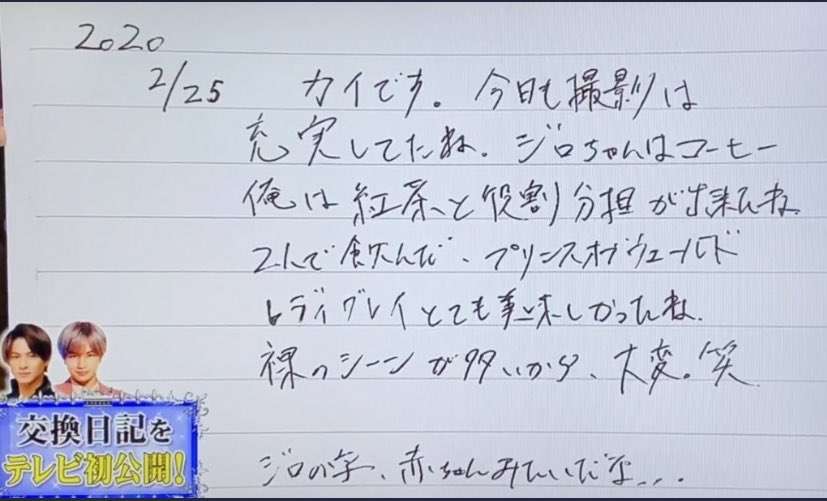 2020
2/25 カイです。今日も撮影は
充実してたね。ジロちゃんはコーヒー
俺は紅茶と役割分担が出来たね
2人で飲んだ、プリンスオブウェールド
レディグレイとても美味しかったね。
裸のシーンが多いから、大変。笑
ジロの字、赤ちゃんみたいだな...
交換日記を
テレビ初公開!